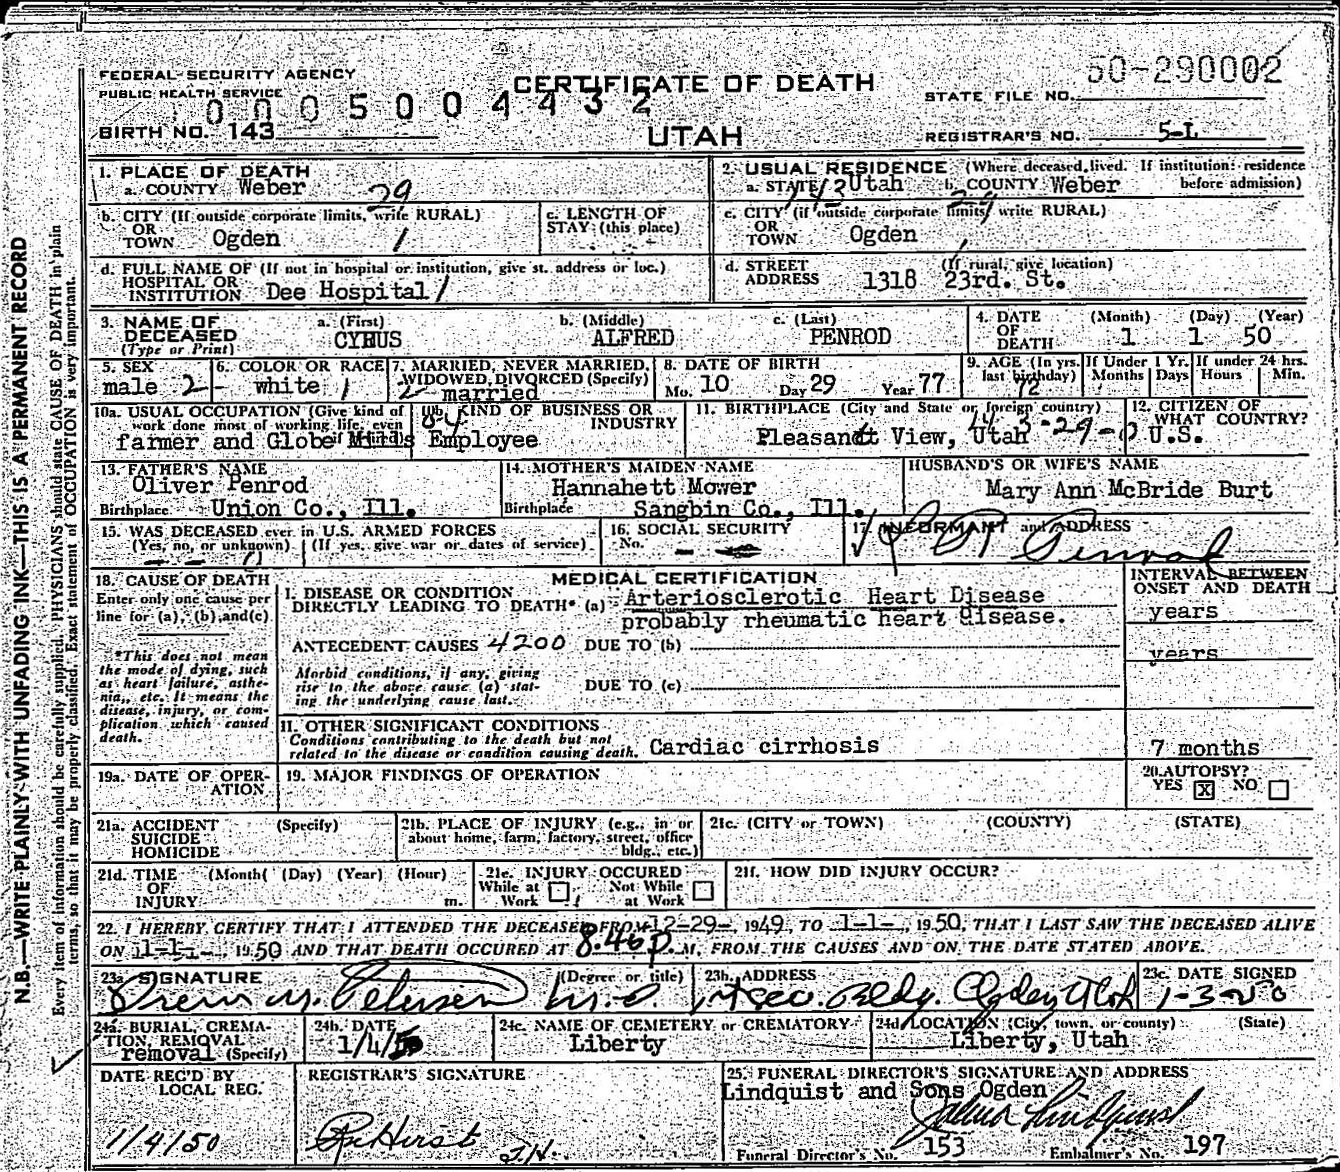 50-290002
FEDERAL SECURITY AGENCY
PUBLIC HEALTH SERVICE
CERTIFICATE OF DEATH
0005004432
STATE FILE NO.
BIRTH NO. 143
UTAH
REGISTRAR'S NO. 5-L
1. PLACE OF DEATH
a. COUNTY Weber 29
2. USUAL RESIDENCE (Where deceased lived. If institution: residence before admission)
a. STATE Utah b. COUNTY Weber
b. CITY (If outside corporate limits, write RURAL)
OR
TOWN Ogden 1
c. LENGTH OF
STAY (this place)
c. CITY (if outside corporate limits, write RURAL)
OR
TOWN Ogden
d. FULL NAME OF (If not in hospital or institution, give st. address or loc.)
HOSPITAL OR
INSTITUTION Dee Hospital 1
d. STREET (If rural, give location)
ADDRESS 1318 23rd. St.
3. NAME OF
DECEASED
(Type or Print)
a. (First) b. (Middle) c. (Last)
CYRUS ALFRED PENROD
4. DATE (Month) (Day) (Year)
OF
DEATH 1 1 50
5. SEX
male 2
6. COLOR OR RACE
white 1
7. MARRIED, NEVER MARRIED,
WIDOWED, DIVORCED (Specify)
2 married
8. DATE OF BIRTH
Mo. 10 Day 29 Year 77
9. AGE (In yrs. last birthday)
72
If Under 1 Yr.
Months Days
If under 24 hrs.
Hours Min.
10a. USUAL OCCUPATION (Give kind of
work done most of working life, even
farmer and Globe Mills Employee
10b. KIND OF BUSINESS OR
INDUSTRY
84
11. BIRTHPLACE (City and State or foreign country)
Pleasant View, Utah
12. CITIZEN OF
WHAT COUNTRY?
U.S.
13. FATHER'S NAME
Oliver Penrod
Birthplace Union Co., Ill.
14. MOTHER'S MAIDEN NAME
Hannahett Mower
Birthplace Sangbin Co., Ill.
HUSBAND'S OR WIFE'S NAME
Mary Ann McBride Burt
15. WAS DECEASED ever in U.S. ARMED FORCES
(Yes, no, or unknown) (If yes, give war or dates of service)
16. SOCIAL SECURITY
No.
17. INFORMANT and ADDRESS
Penrod
18. CAUSE OF DEATH
Enter only one cause per
line for (a), (b), and (c)
*This does not mean
the mode of dying, such
as heart failure, asthe-
nia, etc. It means the
disease, injury, or com-
plication which caused
death.
MEDICAL CERTIFICATION
I. DISEASE OR CONDITION
DIRECTLY LEADING TO DEATH* (a) Arteriosclerotic Heart Disease
probably rheumatic heart disease.
ANTECEDENT CAUSES 4200 DUE TO (b)
Morbid conditions, if any, giving
rise to the above cause (a) stat-
ing the underlying cause last.
DUE TO (c)
INTERVAL BETWEEN
ONSET AND DEATH
years
years
II. OTHER SIGNIFICANT CONDITIONS
Conditions contributing to the death but not
related to the disease or condition causing death. Cardiac cirrhosis
7 months
19a. DATE OF OPER-
ATION
19. MAJOR FINDINGS OF OPERATION
20. AUTOPSY?
YES X NO
21a. ACCIDENT (Specify)
SUICIDE
HOMICIDE
21b. PLACE OF INJURY (e.g., in or
about home, farm, factory, street, office
bldg., etc.)
21c. (CITY or TOWN) (COUNTY) (STATE)
21d. TIME (Month( (Day) (Year) (Hour)
OF
INJURY m.
21e. INJURY OCCURED
While at Work Not While at Work
21f. HOW DID INJURY OCCUR?
22. I HEREBY CERTIFY THAT I ATTENDED THE DECEASED FROM 12-29-, 1949, TO 1-1-, 1950, THAT I LAST SAW THE DECEASED ALIVE
ON 1-1-, 1950 AND THAT DEATH OCCURED AT 8:46 P.M, FROM THE CAUSES AND ON THE DATE STATED ABOVE.
23a. SIGNATURE (Degree or title)
M. Petersen M.D
23b. ADDRESS
Bldg. Ogden Utah
23c. DATE SIGNED
1-3-50
24a. BURIAL, CREMA-
TION, REMOVAL
removal (Specify)
24b. DATE
1/4/50
24c. NAME OF CEMETERY or CREMATORY
Liberty
24d. LOCATION (City, town, or county) (State)
Liberty, Utah
DATE REC'D BY
LOCAL REG.
1/4/50
REGISTRAR'S SIGNATURE
25. FUNERAL DIRECTOR'S SIGNATURE AND ADDRESS
Lindquist and Sons Ogden
Lindquist
Funeral Director's No. 153 Embalmer's No. 197
N.B.—WRITE PLAINLY WITH UNFADING INK—THIS IS A PERMANENT RECORD
Every item of information should be carefully supplied. PHYSICIANS should state CAUSE OF DEATH in plain
terms, so that it may be properly classified. Exact statement of OCCUPATION is very important.